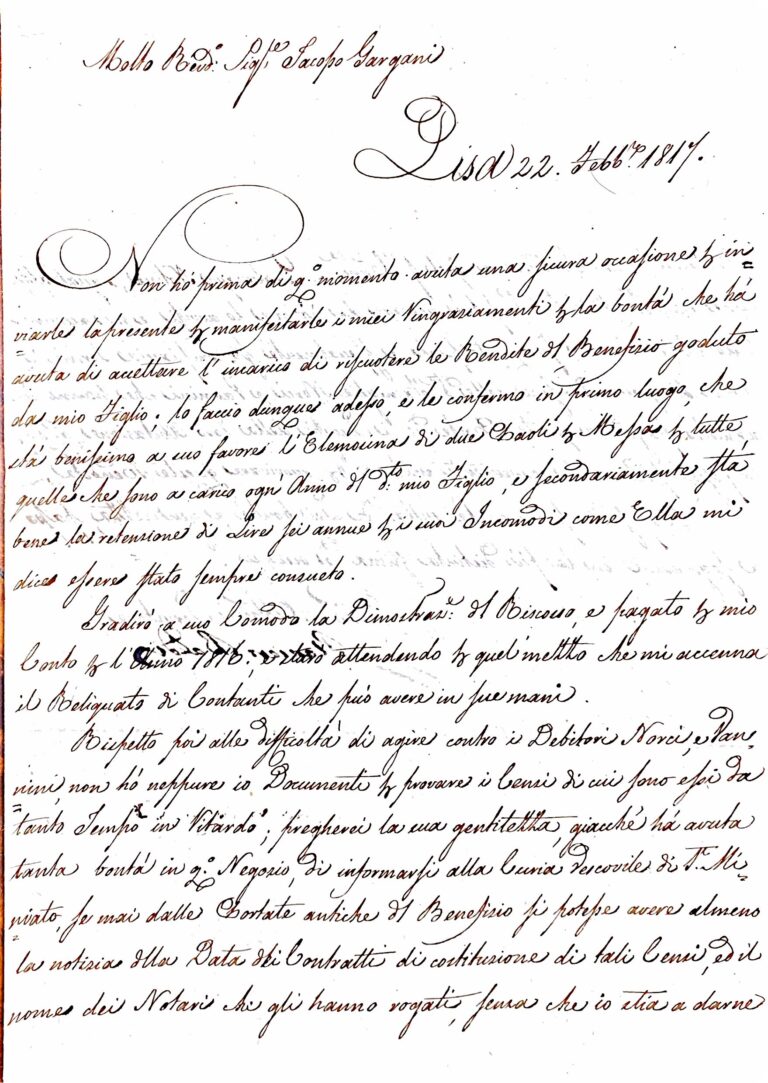 Molto Revd:º Sigre: Jacopo Gargani
Pisa 22. Febb:º 1817.
Non hò prima di q.º momento avuta una sicura occasione p in=
=viarle la presente p manifestarle i miei ringraziamenti p la bontà che há
avuta di accettare l'incarico di riscuotere le Rendite dl Benefizio goduto
da mio Figlio; lo faccio dunque adesso, e le confermo in primo luogo, che
stà benissimo a suo favore l'Elemosina di due Paoli p Messa p tutte
quelle che sono a carico ogn'Anno dl d:to mio Figlio, e secondariamente stà
bene la retensione di Lire sei annue p i suoi Incomodi come Ella mi
dice essere stato sempre consueto.
Gradirò a suo Comodo la Dimostraz:e dl Riscosso, e pagato p mio
Conto p l'Anno 1816; e starò attendendo p quel mezzo che mi accenna
il Reliquato di Contanti che può avere in sue mani.
Rispetto poi alle difficoltà di agire contro i Debitori Norci, e Van=
=nini, non hò neppure io Documenti p provare i Censi di cui sono essi da
tanto Tempo in Ritardo; pregherei la sua gentilezza, giacché há avuta
tanta bontà in q.º Negozio, di informarsi alla Curia Vescovile di S. Mi=
=niato, se mai dalle Portate antiche dl Benefizio si potesse avere almeno
la notizia dlla Data dei Contratti di costituzione di tali Censi, ed il
nome dei Notari che gli hanno rogati, senza che io stia a darne